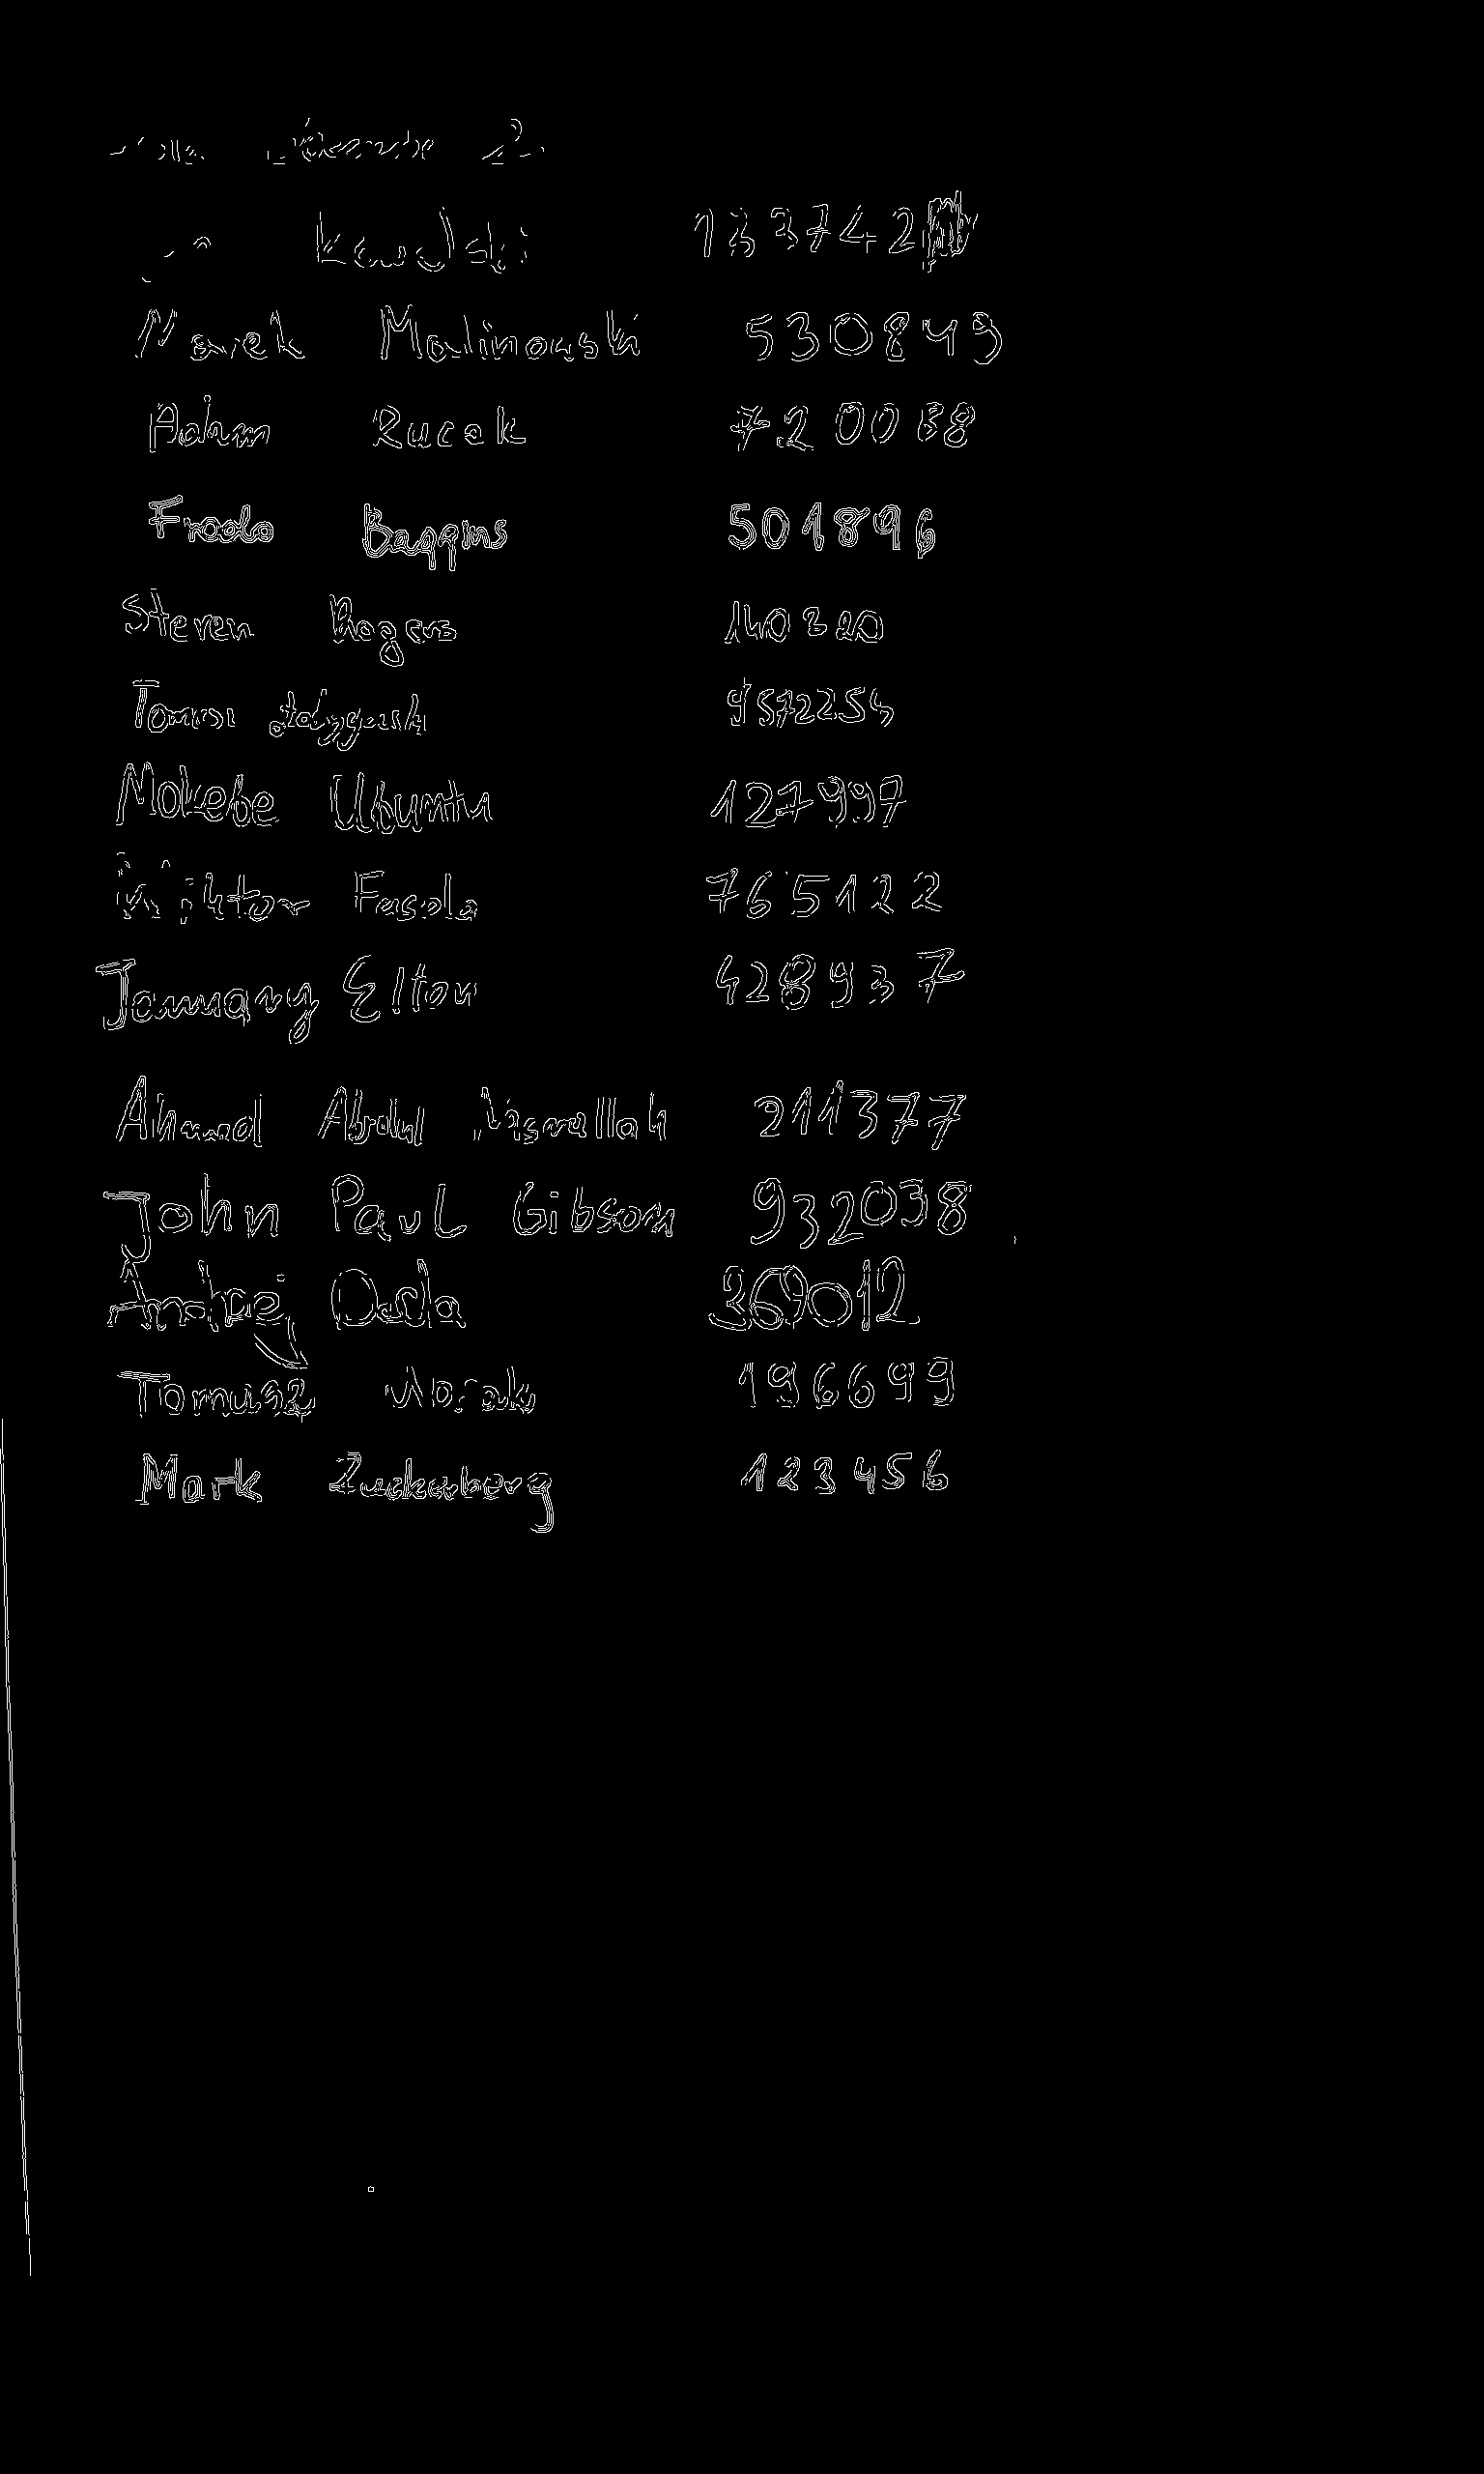 133742
Marek Malinowski 530849
Adam Rucek 720088
Frodo Baggins 501896
Steven Rogers 140320
9572254
Mokebe Ubuntu 127997
Wiktor Fasola 765122
January Elton 428937
Ahmed Abdul Nasrallah 211377
John Paul Gibson 932038
Andrzej Duda 369012
Tomasz Novak 196699
Mark Zuckerberg 123456